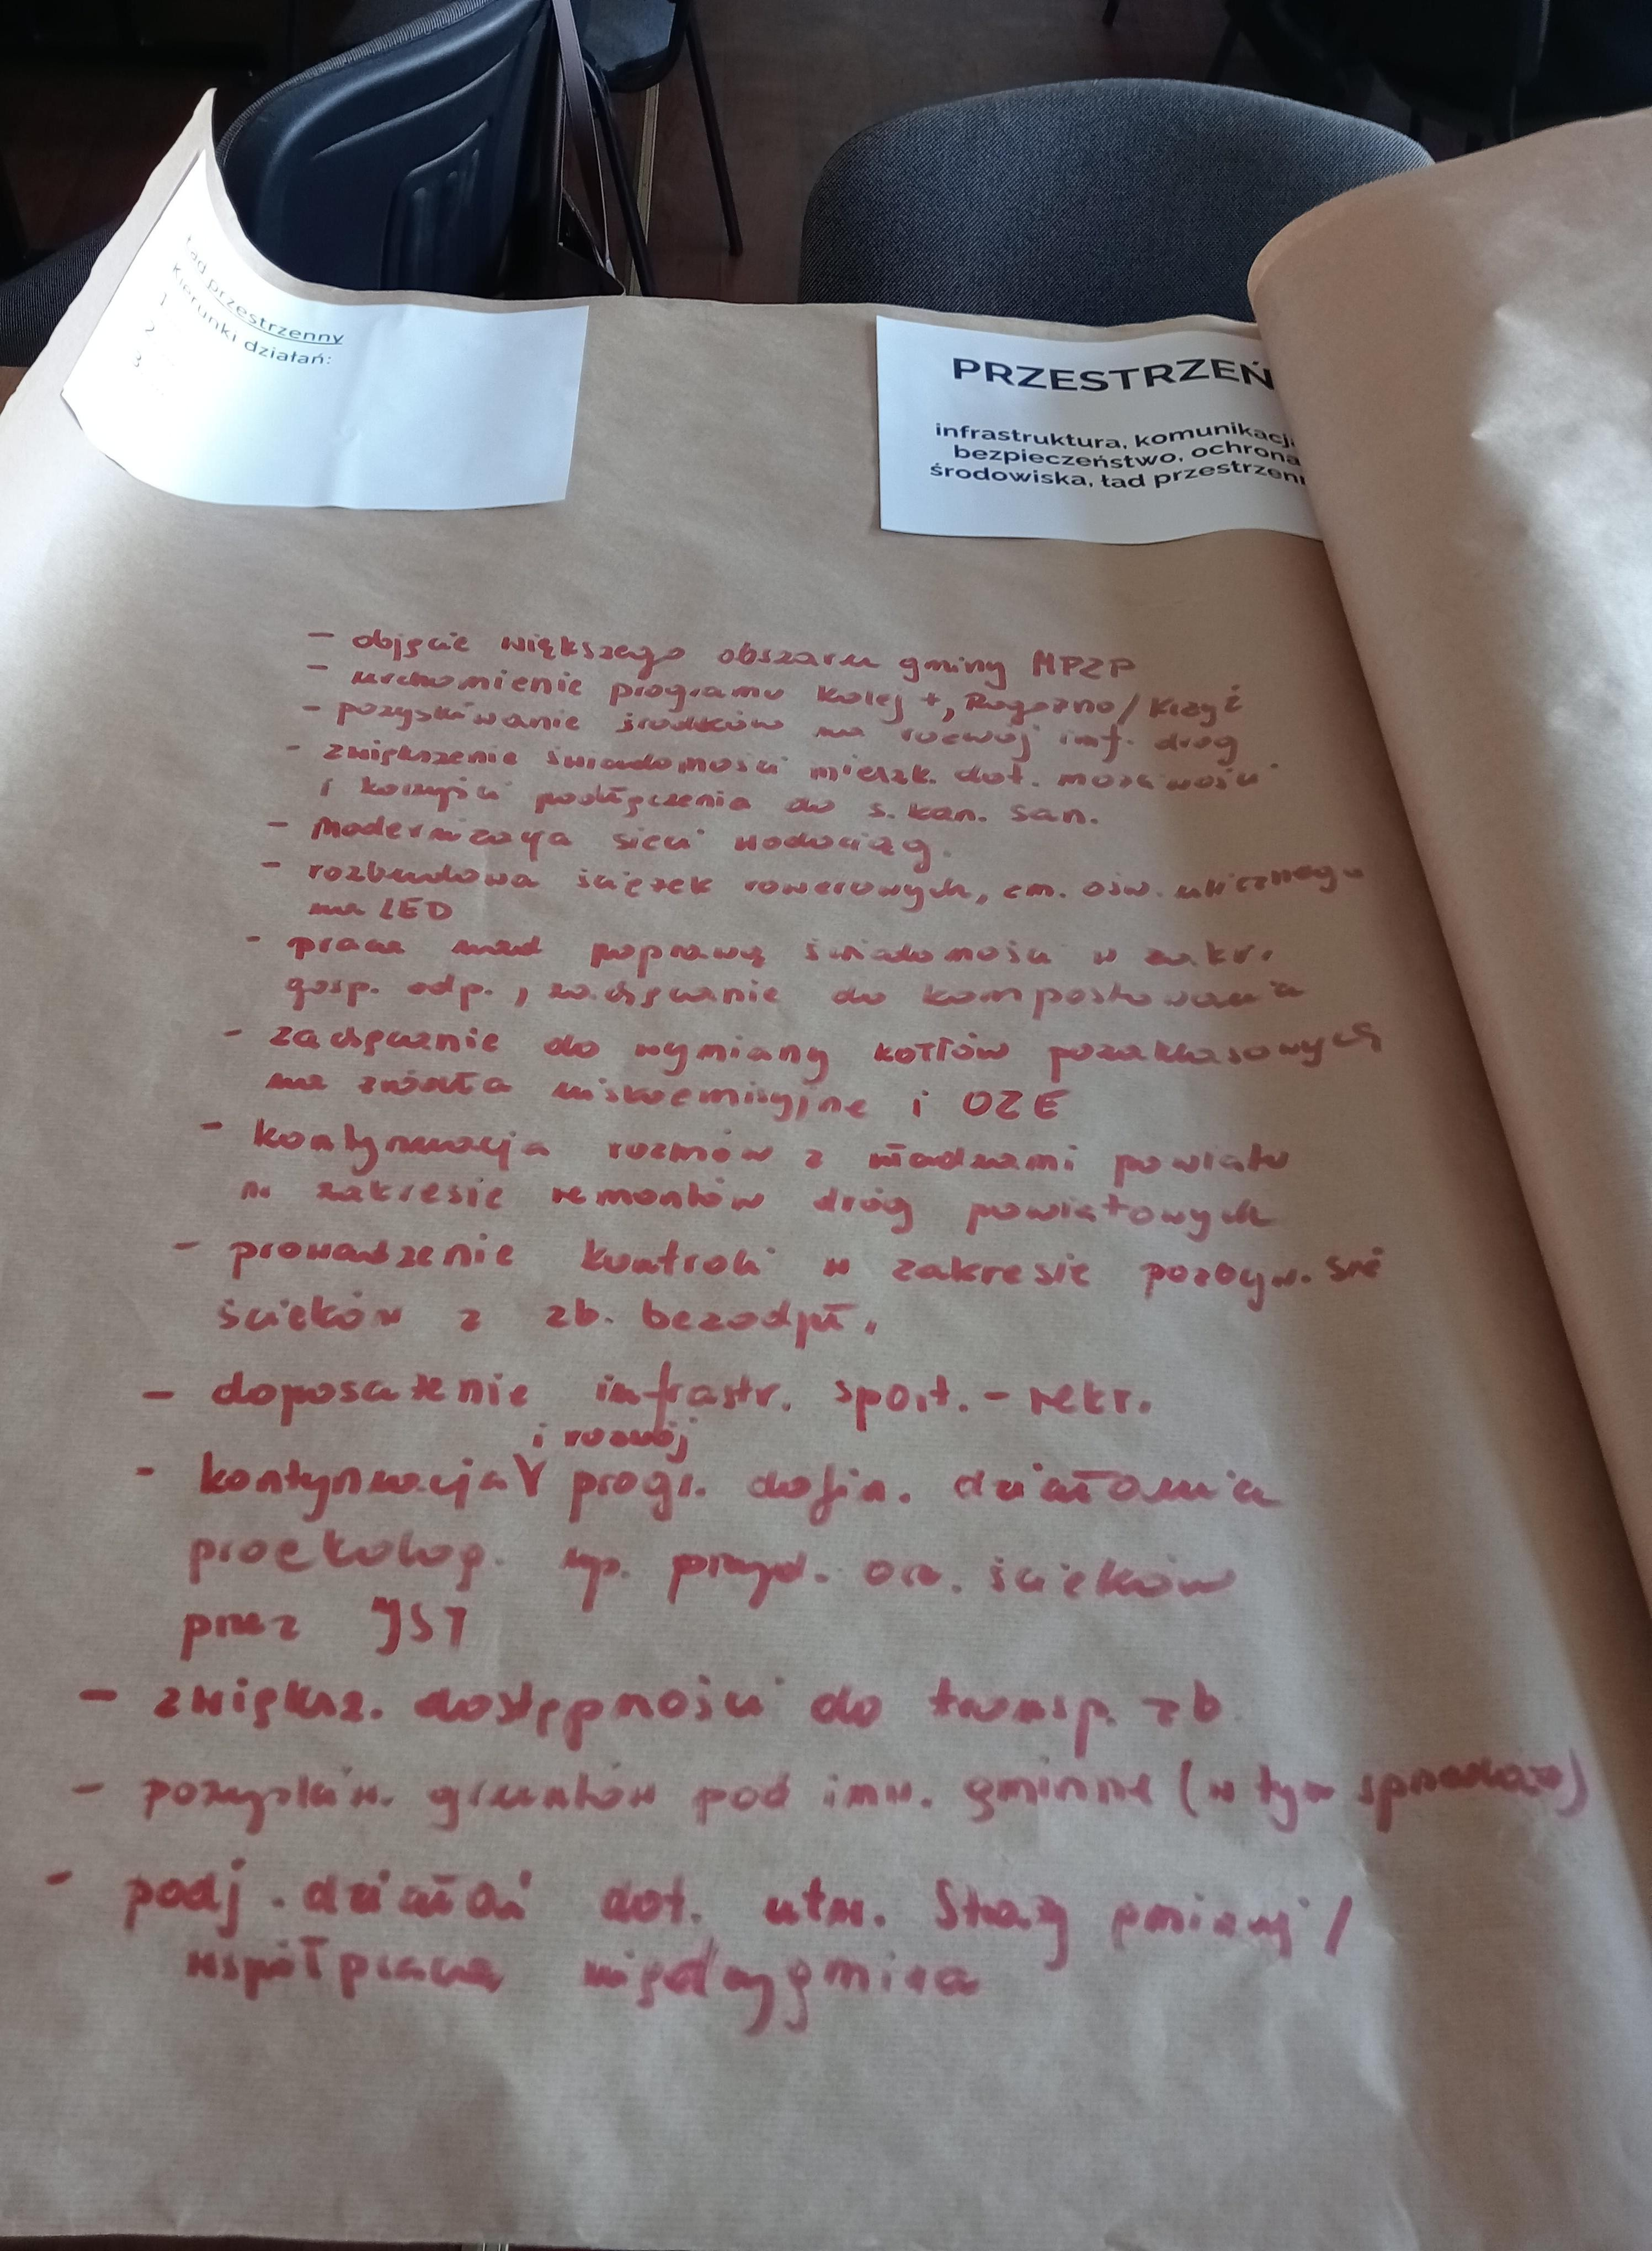 Ład przestrzenny
Kierunki działań:
1
2
3
PRZESTRZEŃ
infrastruktura, komunikacj
bezpieczeństwo, ochrona
środowiska, ład przestrzenn
- objęcie większego obszaru gminy MPZP
- uruchomienie programu Kolej +, Rogoźno/Krzyż
- pozyskiwanie środków na rozwój inf. dróg
- zwiększenie świadomości mieszk. dot. możliwości
i korzyści podłączenia do s. kan. san.
- Modernizacja sieci wodociąg.
- rozbudowa ścieżek rowerowych, zm. ośw. ulicznego
na LED
- praca nad poprawą świadomości w zakr.
gosp. odp., zachęcanie do kompostowania
- zachęcanie do wymiany kotłów pozaklasowych
na źródła niskoemisyjne i OZE
- kontynuacja rozmów z władzami powiatu
w zakresie remontów dróg powiatowych
- prowadzenie kontroli w zakresie pozbyw. się
ścieków z zb. bezodpł.
- doposażenie infrastr. sport. - rekr.
i rozwój
- kontynuacja V progr. dofin. działania
proekolog. np. przyd. ocz. ścieków
przez JST
- zwiększ. dostępności do transp. zb
- pozyskiw. gruntów pod inw. gminne (w tym sprzedaż)
- podj. działań dot. utw. Straży gminnej /
współpraca międzygminna